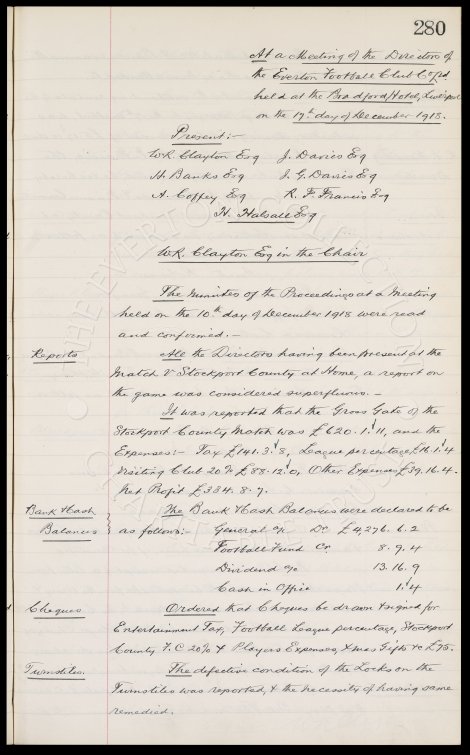 280
At a Meeting of the Directors of
the Everton Football Club Co Ltd
held at the Bradford Hotel, Liverpool
on the 17th day of December 1918.
Present:-
W.R. Clayton Esq J. Davies Esq
H. Banks Esq J. G. Davies Esq
A. Coffey Esq R. F. Francis Esq
H. Halsall Esq
W.R. Clayton Esq in the Chair
The Minutes of the Proceedings at a Meeting
held on the 10th day of December 1918 were read
and confirmed.-
Reports All the Directors having been present at the
Match V Stockport County at Home, a report on
the game was considered superfluous.-
It was reported that the Gross Gate of the
Stockport County Match was £620.1.11, and the
Expenses:- Tax £141.3.8, League percentage £16.1.4
Visiting Club 20% £88.12.0, Other Expenses £39.16.4.
Net Profit £334.8.7.
Bank & Cash The Bank & Cash Balances were declared to be
Balances as follows: General a/c Dr £4,276.6.2
Football Fund Cr 8.9.4
Dividend a/c 13.16.9
Cash in Office 1.4
Cheques Ordered that Cheques be drawn & signed for
Entertainment Tax, Football League percentage, Stockport
County F.C 20% & Players Expenses, Xmas Gifts &c £75.
Turnstiles. The defective condition of the Locks on the
Turnstiles was reported, & the necessity of having same
remedied.